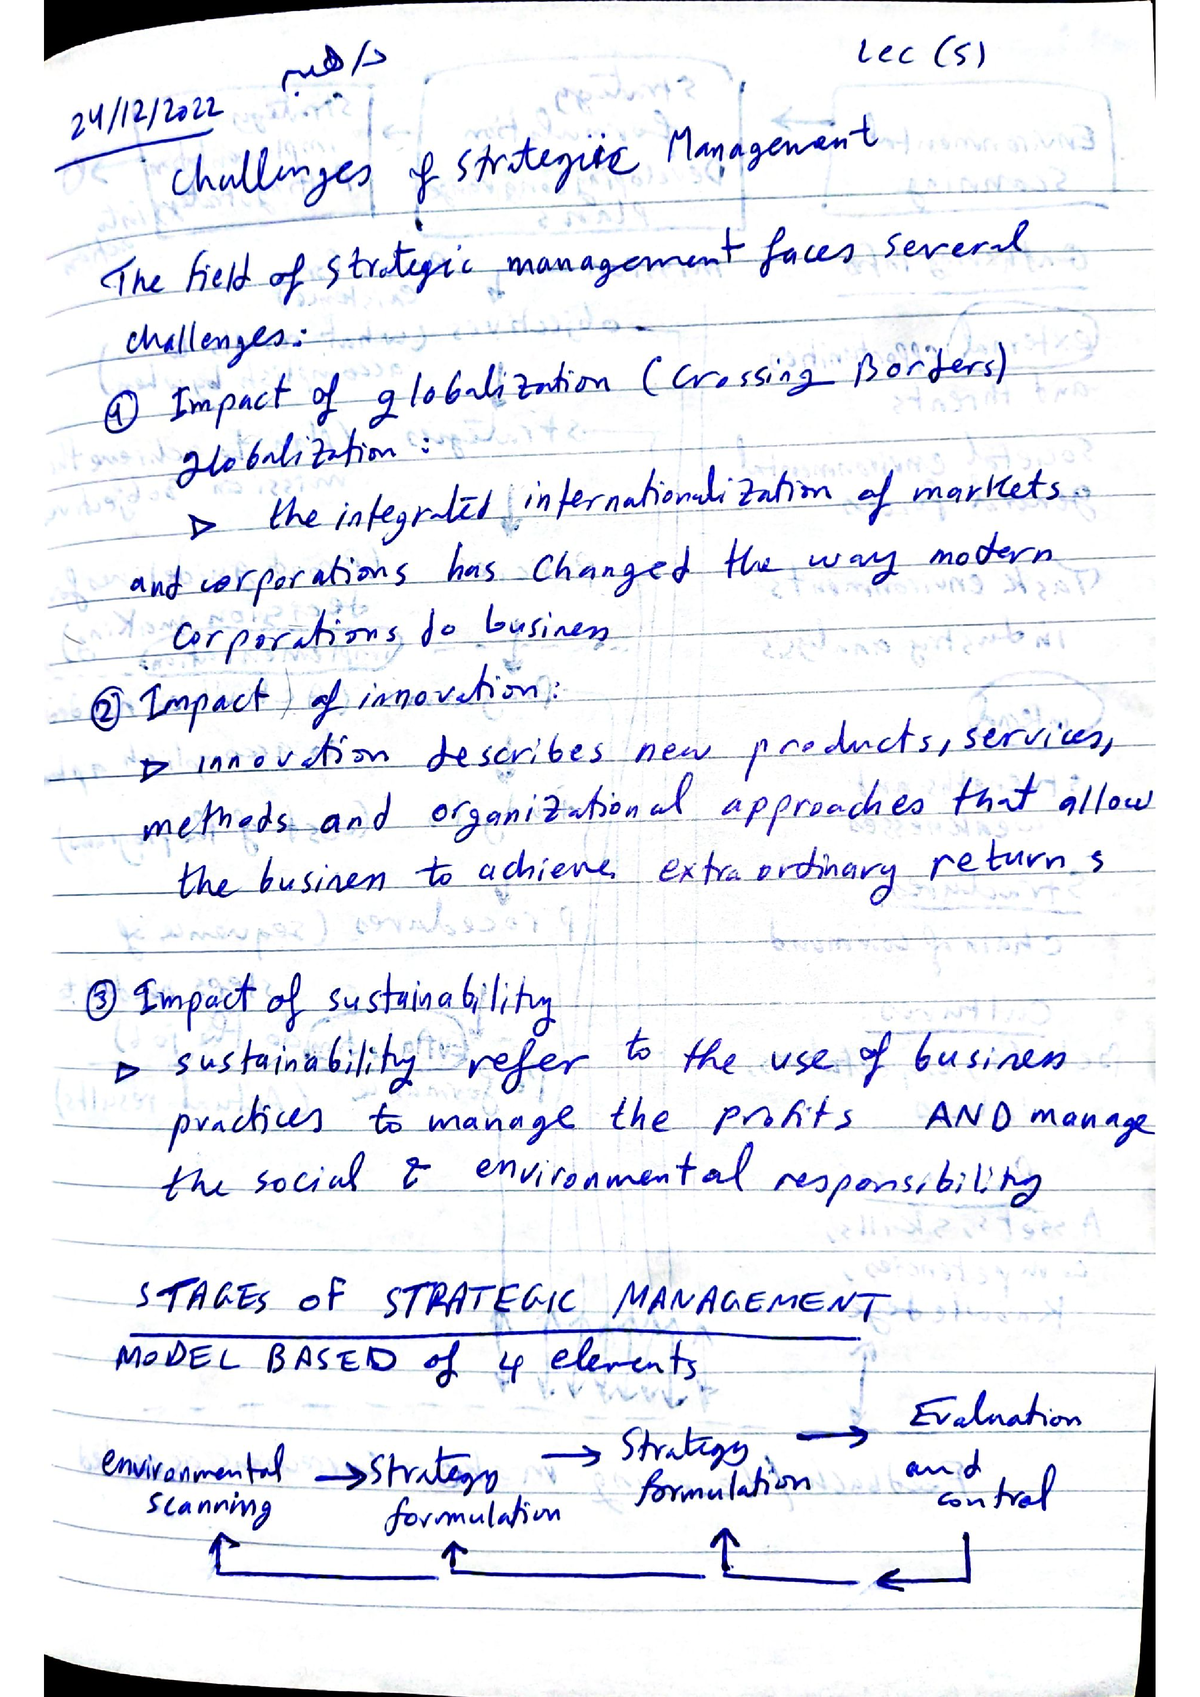 د/هيثم
Lec (5)
24/12/2022
challenges of strategic Management
The field of strategic management faces several
challenges:
① Impact of globalization (Crossing Borders)
globalization:
▷ the integrated internationalization of markets
and corporations has Changed the way modern
corporations do business
② Impact of innovation:
▷ innovation describes new products, services,
methods and organizational approaches that allow
the business to achieve extraordinary returns
③ Impact of sustainability
▷ sustainability refer to the use of business
practices to manage the profits AND manage
the social & environmental responsibility
STAGES OF STRATEGIC MANAGEMENT
MODEL BASED of 4 elements
environmental scanning → Strategy formulation → Strategy formulation → Evaluation and control